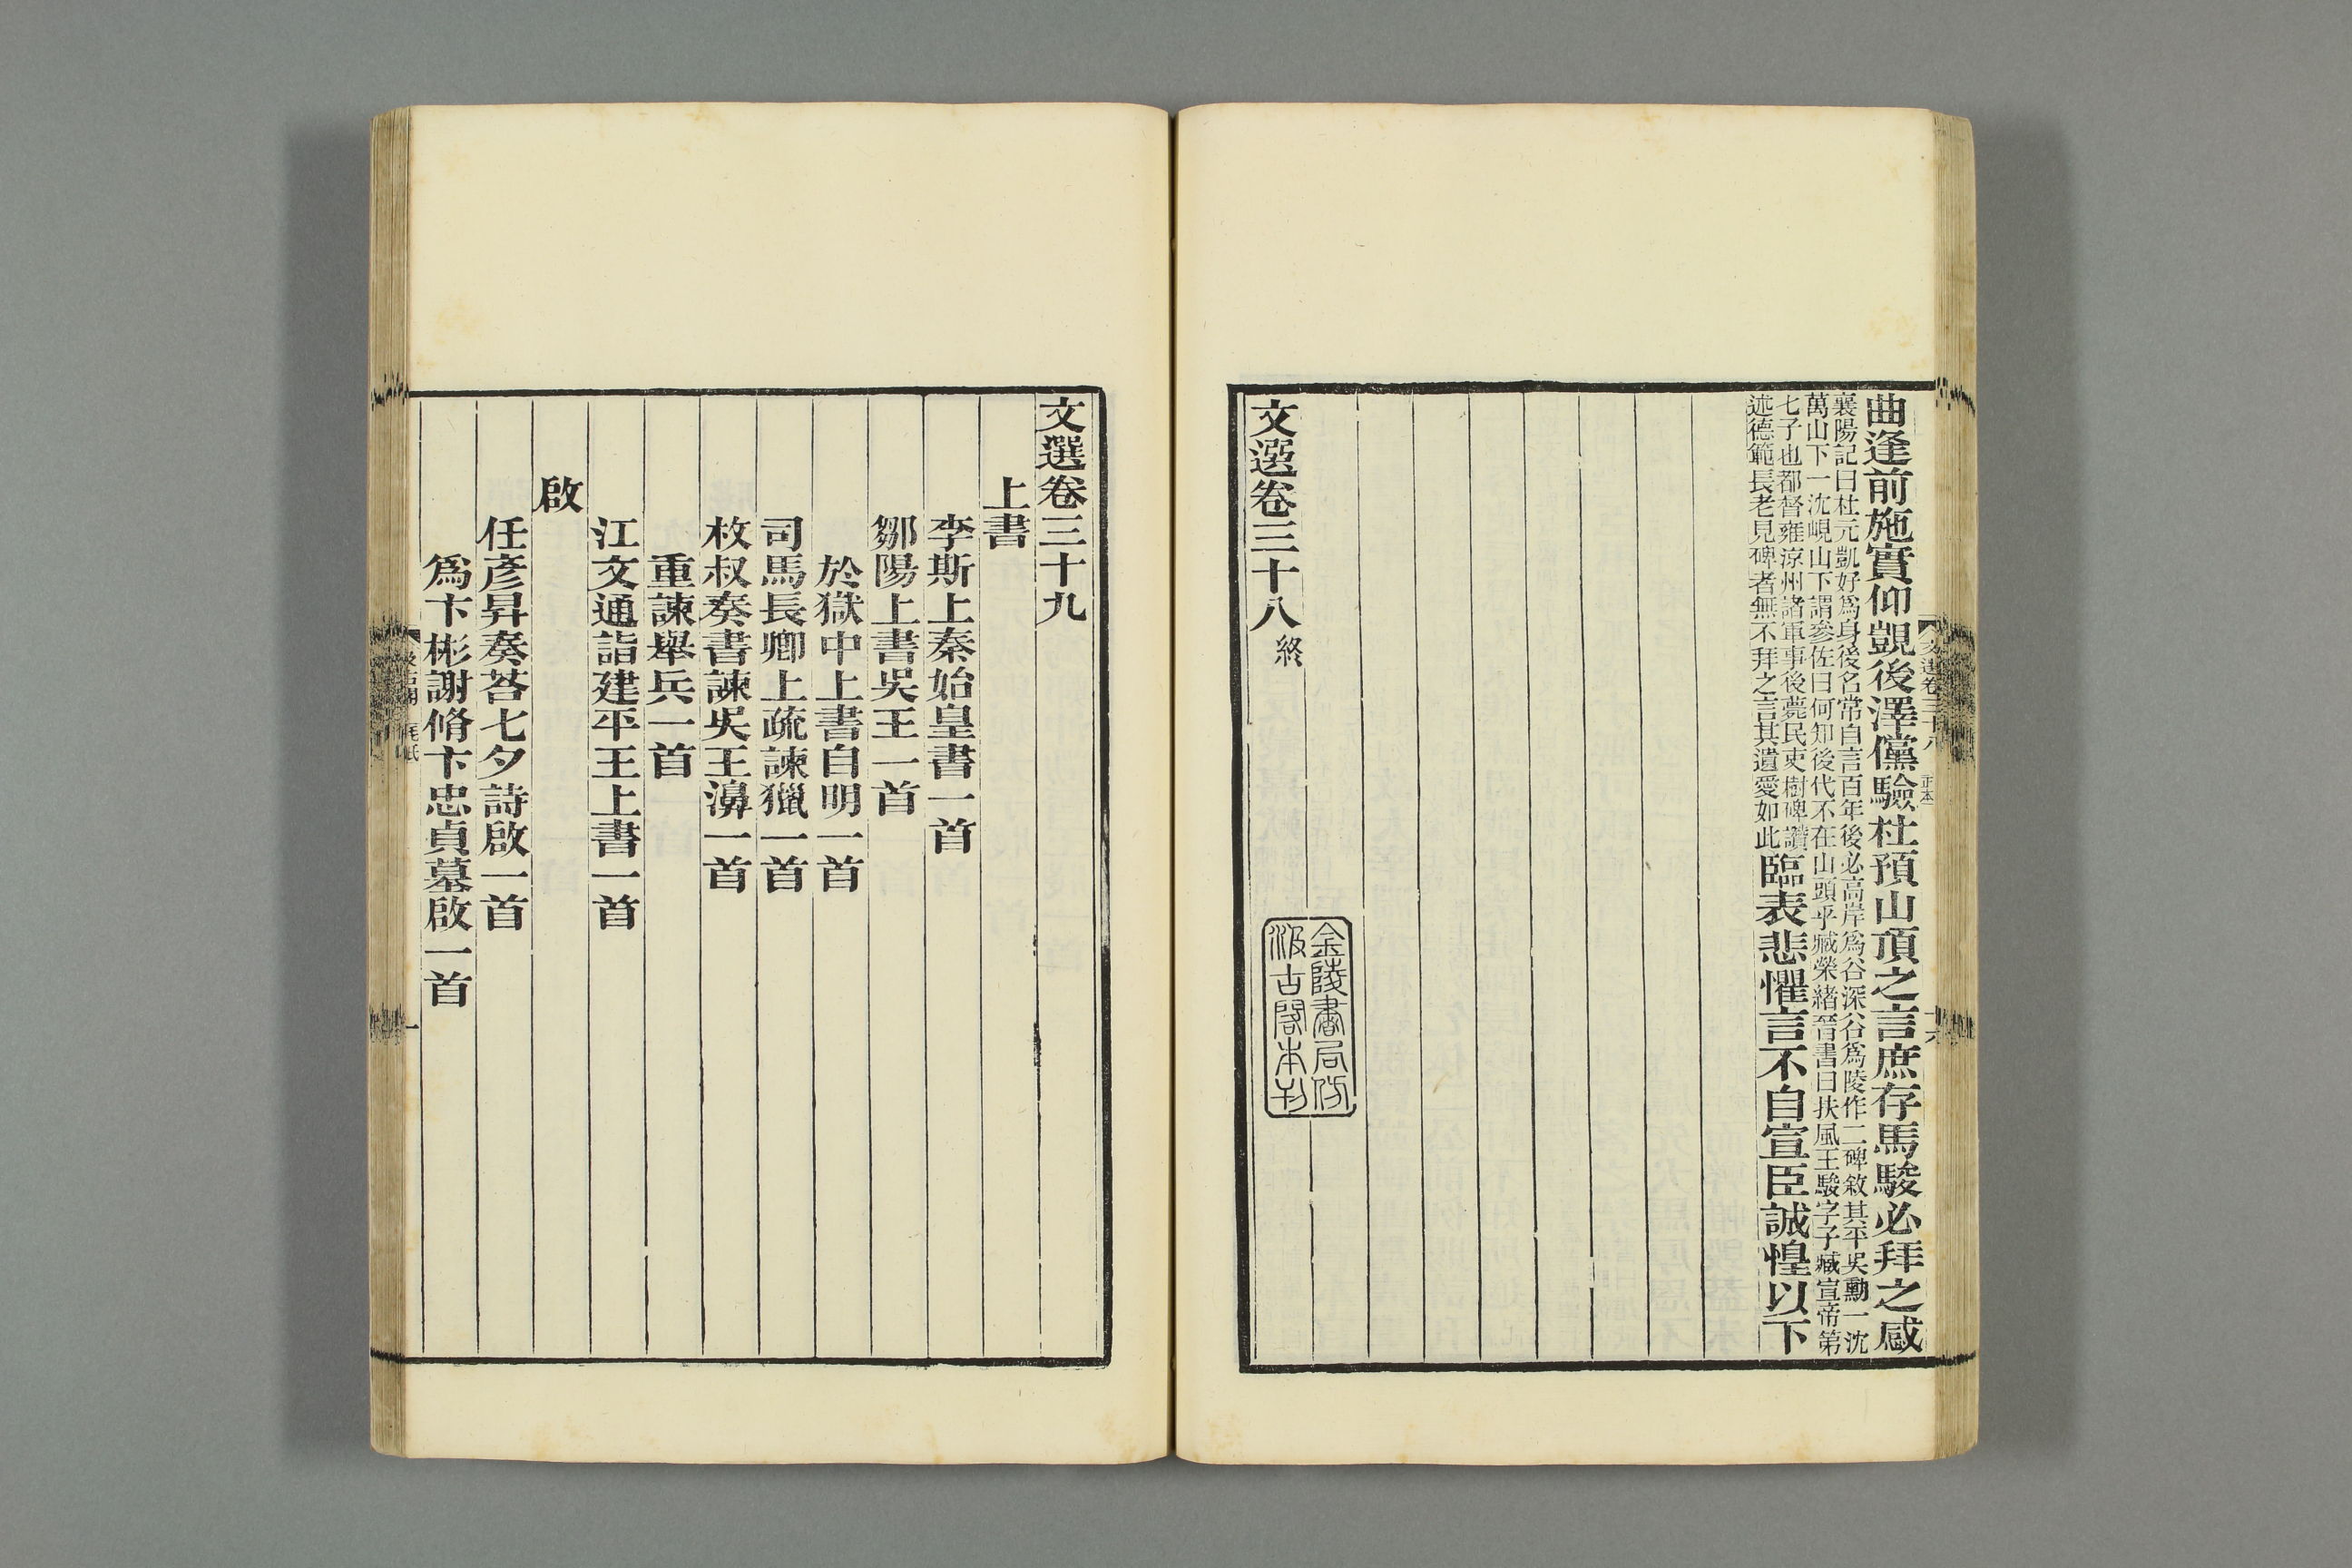 曲逢前施實仰覬後澤儻驗杜預山頂之言庶存馬駿必拜之感
襄陽記曰杜元凱好爲身後名常自言百年後必高岸爲谷深谷爲陵作二碑敘其平吳勳一沈
萬山下一沈峴山下謂參佐曰何知後代不在山頭乎臧榮緒晉書曰扶風王駿字子臧宣帝第
七子也都督雍涼州諸軍事後薨民吏樹碑讚
述德範長老見碑者無不拜之言其遺愛如此
臨表悲懼言不自宣臣誠惶以下
文選卷三十八 終
金陵書局仿
汲古閣本刊
文選卷三十九
上書
李斯上秦始皇書一首
鄒陽上書吳王一首
於獄中上書自明一首
司馬長卿上疏諫獵一首
枚叔奏書諫吳王濞一首
重諫舉兵一首
江文通詣建平王上書一首
啟
任彥昇奏荅七夕詩啟一首
爲卞彬謝脩卞忠貞墓啟一首